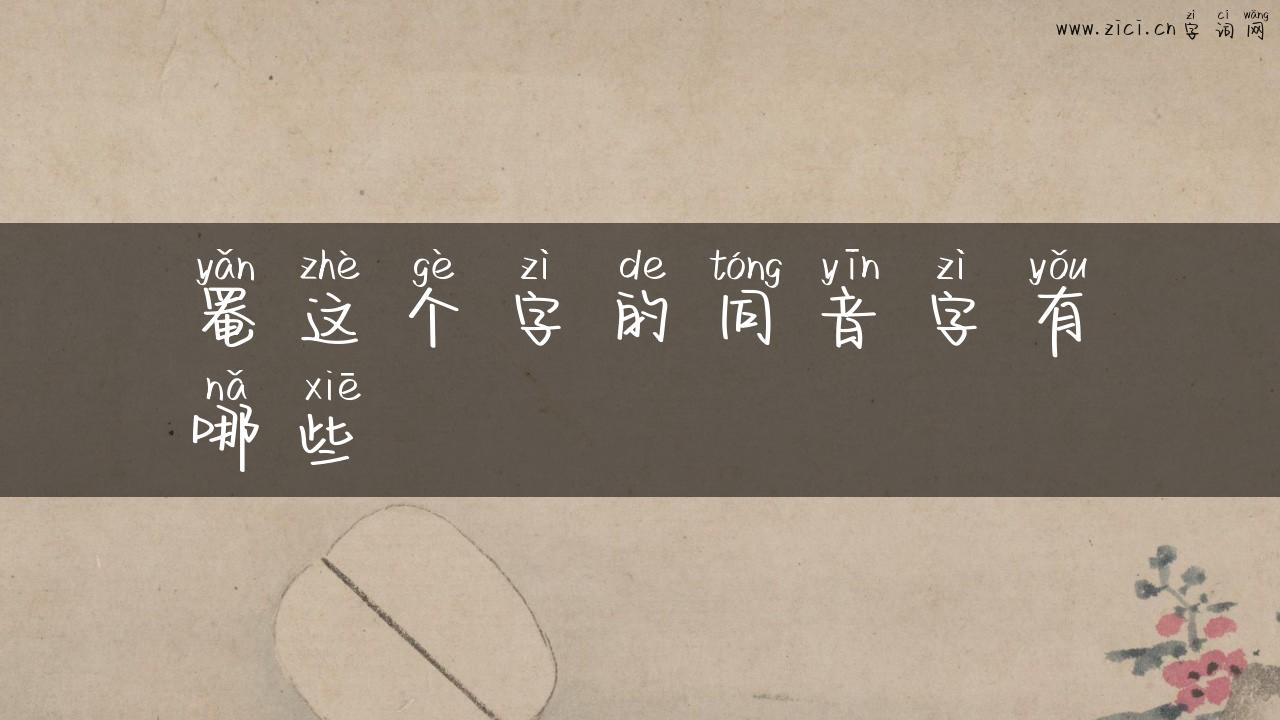 zì cí wǎng
www.zici.cn 字词网
yǎn zhè gè zì de tóng yīn zì yǒu
罨这个字的同音字有
nǎ xiē
哪些